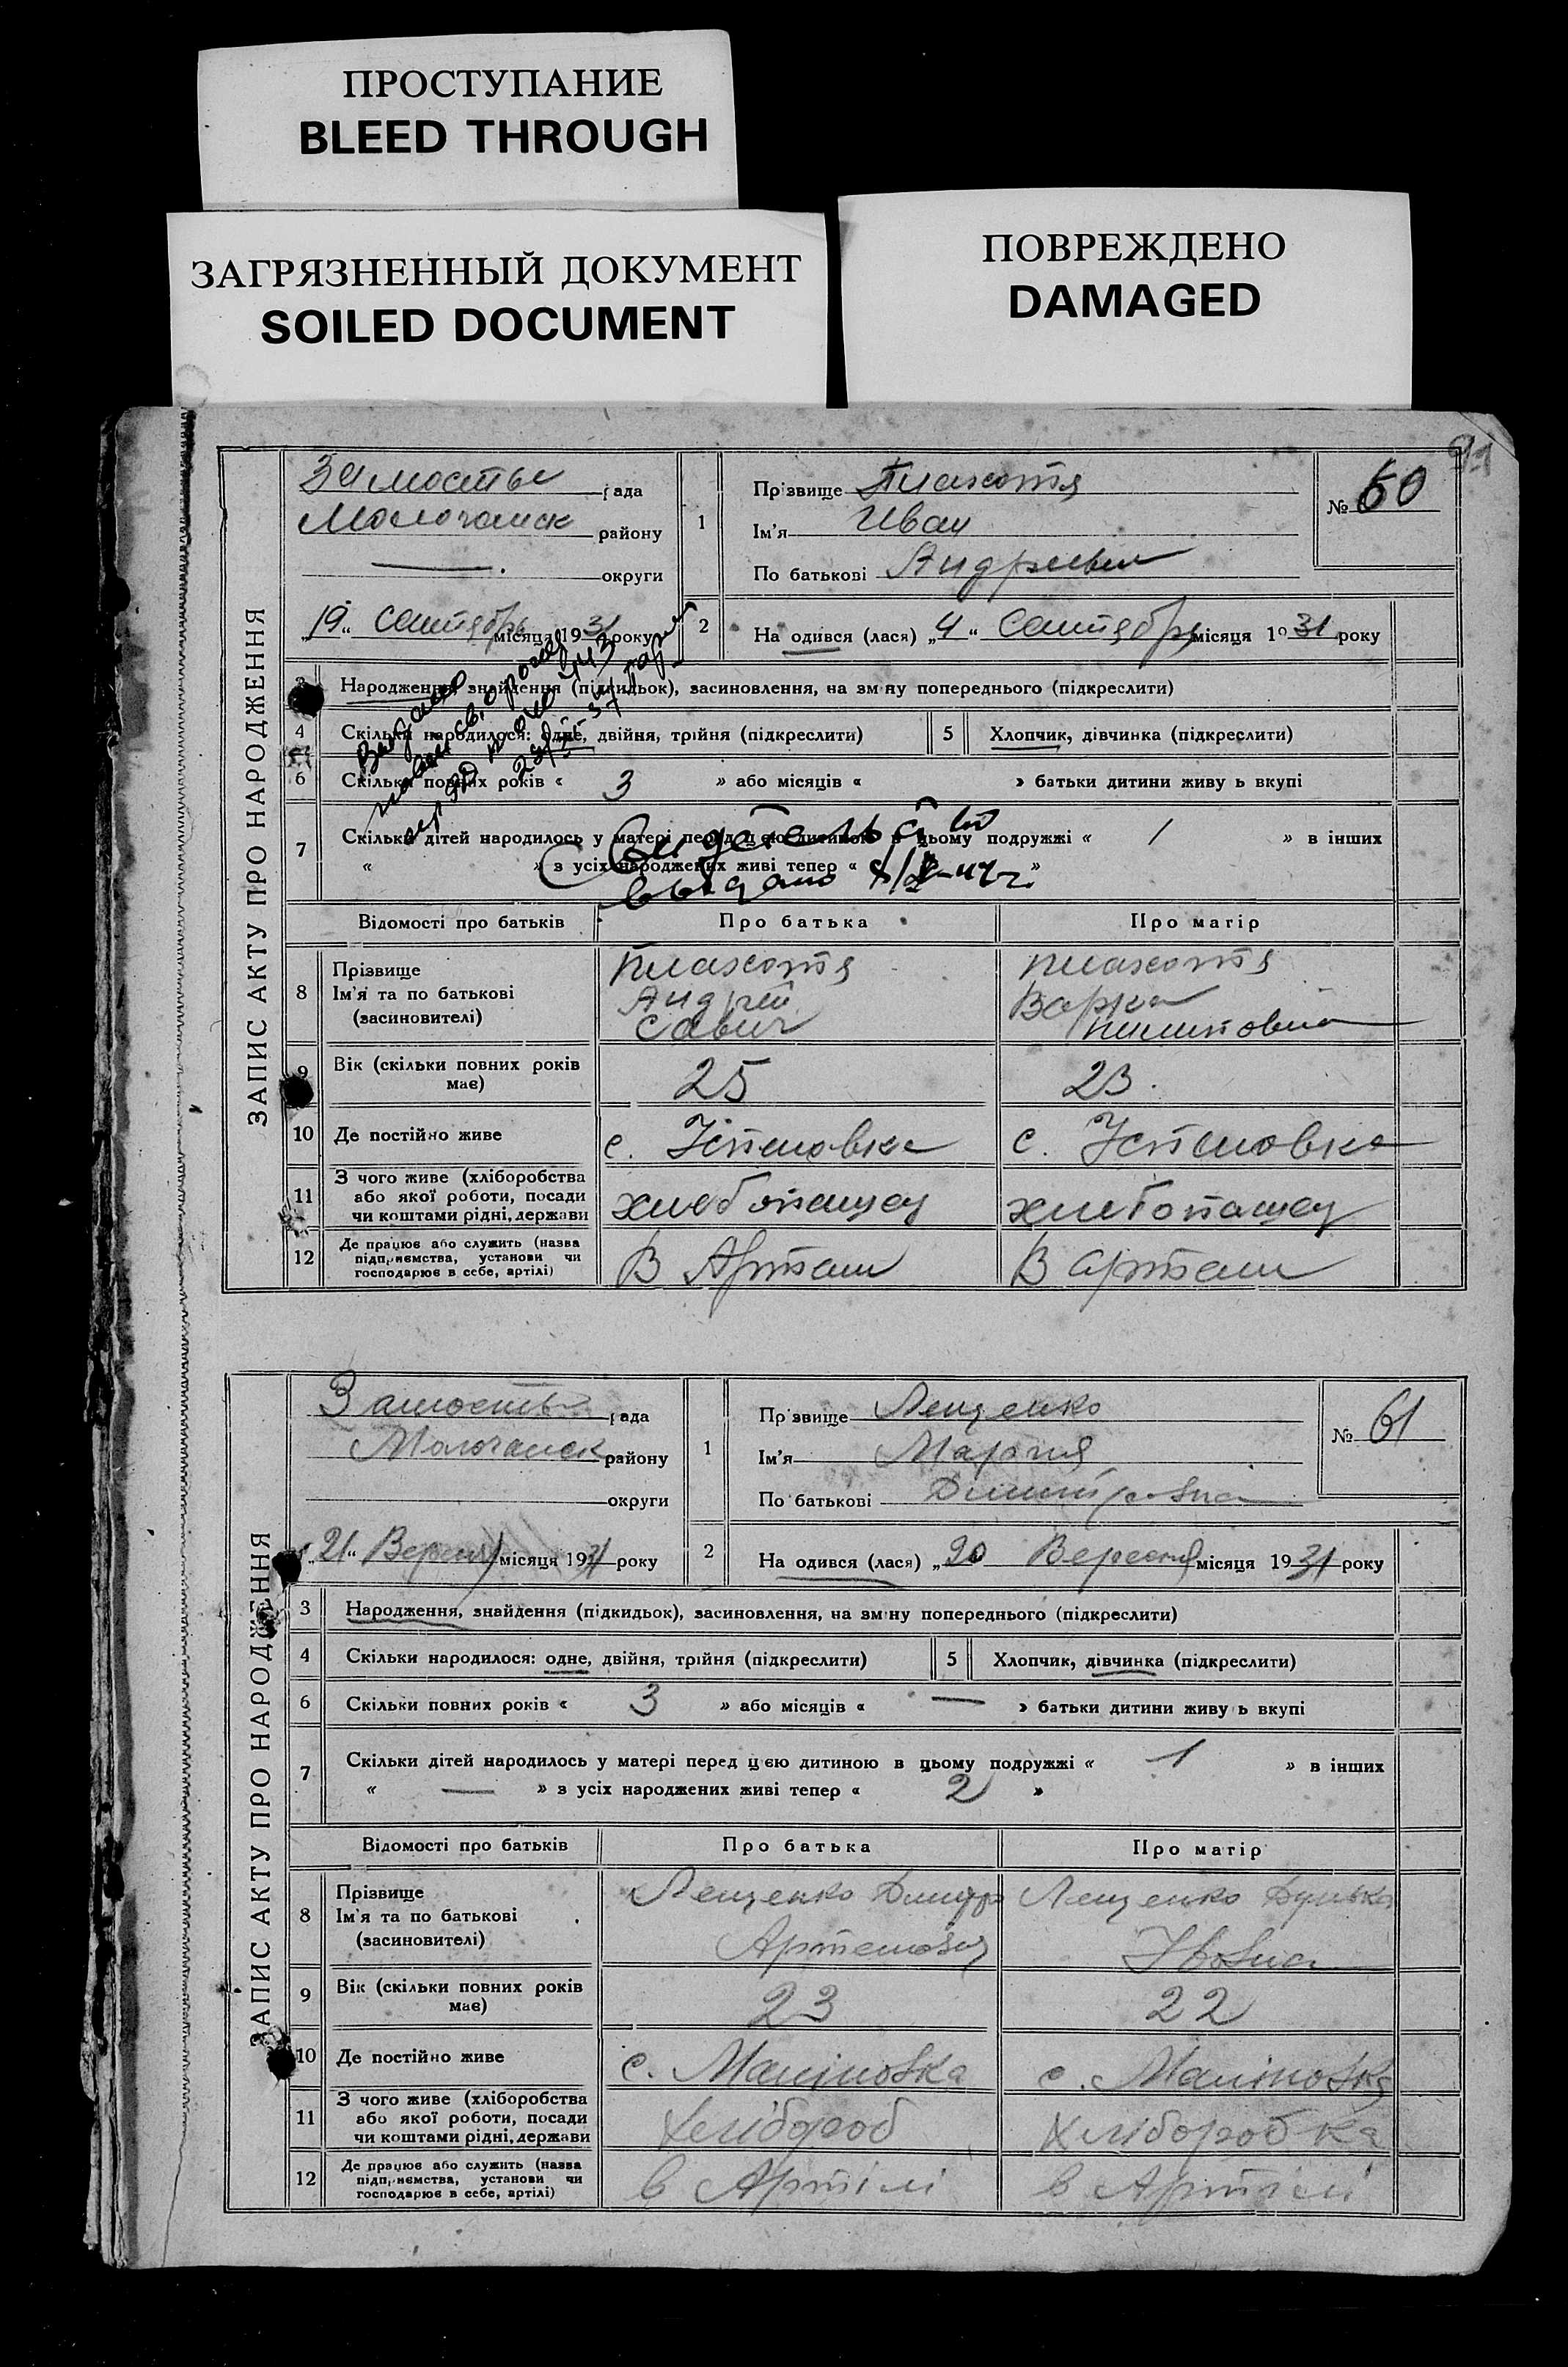 ПРОСТУПАНИЕ
BLEED THROUGH
ЗАГРЯЗНЕННЫЙ ДОКУМЕНТ
SOILED DOCUMENT
ПОВРЕЖДЕНО
DAMAGED
91
ЗАПИС АКТУ ПРО НАРОДЖЕННЯ
Замостье рада
Молочанск району
округи
„19“ Сентябрь місяця 1931 року
1
Прізвище Плахотя
Ім'я Иван
По батькові Андреевич
№ 60
2
На одився (лася) „4“ Сентября місяця 1931 року
3 Народження, знайдення (підкидьок), засиновлення, на зміну попереднього (підкреслити)
4 Скільки народилося: одне, двійня, трійня (підкреслити) 5 Хлопчик, дівчинка (підкреслити)
6 Скільки повних років « 3 » або місяців « » батьки дитини живуть вкупі
7 Скільки дітей народилось у матері перед цією дитиною в цьому подружжі « 1 » в інших
« » з усіх народжених живі тепер « »
Выдано
Свидетельство
выдано
Відомості про батьків Про батька Про матір
8 Прізвище Ім'я та по батькові (засиновителі)
Плахотя Андрей Савич
Плахотя Варка Пилиповна
9 Вік (скільки повних років має) 25 23
10 Де постійно живе с. Устиновка с. Устиновка
11 З чого живе (хліборобства або якої роботи, посади чи коштами рідні, держави
хлебопашец хлебопашец
12 Де працює або служить (назва підприємства, установи чи господарює в себе, артілі)
В Артели В артели
ЗАПИС АКТУ ПРО НАРОДЖЕННЯ
Замостье рада
Молочанск району
округи
„21“ Вересня місяця 1931 року
1
Прізвище Лещенко
Ім'я Мария
По батькові Дмитровна
№ 61
2
На одився (лася) „20 Вересня місяця 1931 року
3 Народження, знайдення (підкидьок), засиновлення, на зміну попереднього (підкреслити)
4 Скільки народилося: одне, двійня, трійня (підкреслити) 5 Хлопчик, дівчинка (підкреслити)
6 Скільки повних років « 3 » або місяців « — » батьки дитини живуть вкупі
7 Скільки дітей народилось у матері перед цією дитиною в цьому подружжі « 1 » в інших
« — » з усіх народжених живі тепер « 2 »
Відомості про батьків Про батька Про матір
8 Прізвище Ім'я та по батькові (засиновителі)
Лещенко Дмитро Артемович
Лещенко Дунька Івовна
9 Вік (скільки повних років має) 23 22
10 Де постійно живе с. Маніновка с. Маніновка
11 З чого живе (хліборобства або якої роботи, посади чи коштами рідні, держави
Хлібороб Хліборобка
12 Де працює або служить (назва підприємства, установи чи господарює в себе, артілі)
в Артілі в Артілі